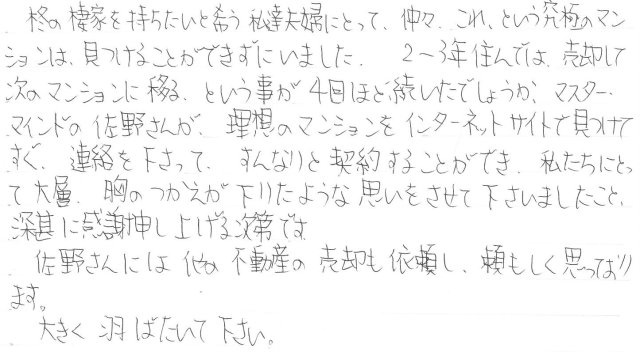 終の棲家を持ちたいと希う私達夫婦にとって、仲々、これ、という究極のマン
ションは、見つけることができずにいました。 2〜3年住んでは、売却して
次のマンションに移る、という事が4回ほど続いたでしょうか、マスター・
マインドの佐野さんが、理想のマンションをインターネットサイトで見つけて
すぐ、連絡を下さって、すんなりと契約することができ、私たちにとっ
て大層、胸のつかえが下りたような思いをさせて下さいましたこと、
深甚に感謝申し上げる次第です
佐野さんには他の不動産の売却も依頼し、頼もしく思っており
ます。
大きく羽ばたいて下さい。